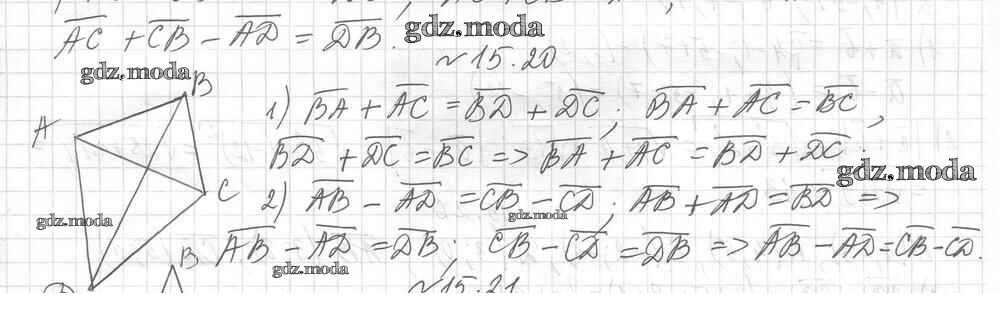 AC + CB - AD = DB.
gdz.moda
~15.20
gdz.moda
B
A
C
1) BA + AC = BD + DC; BA + AC = BC,
BD + DC = BC => BA + AC = BD + DC.
gdz.moda
gdz.moda
2) AB - AD = CB - CD; AB + AD = BD =>
gdz.moda
AB - AD = DB; CB - CD = DB => AB - AD = CB - CD.
gdz.moda
B
~15.21